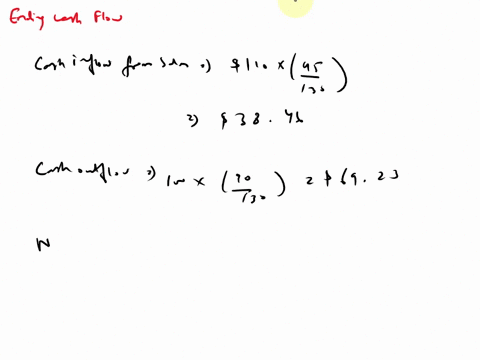 Entity cash flow
Cash inflow from sales => $110 × (45/130)
=> $38.46
Cash outflow => 100 × (90/130) = $69.23
N